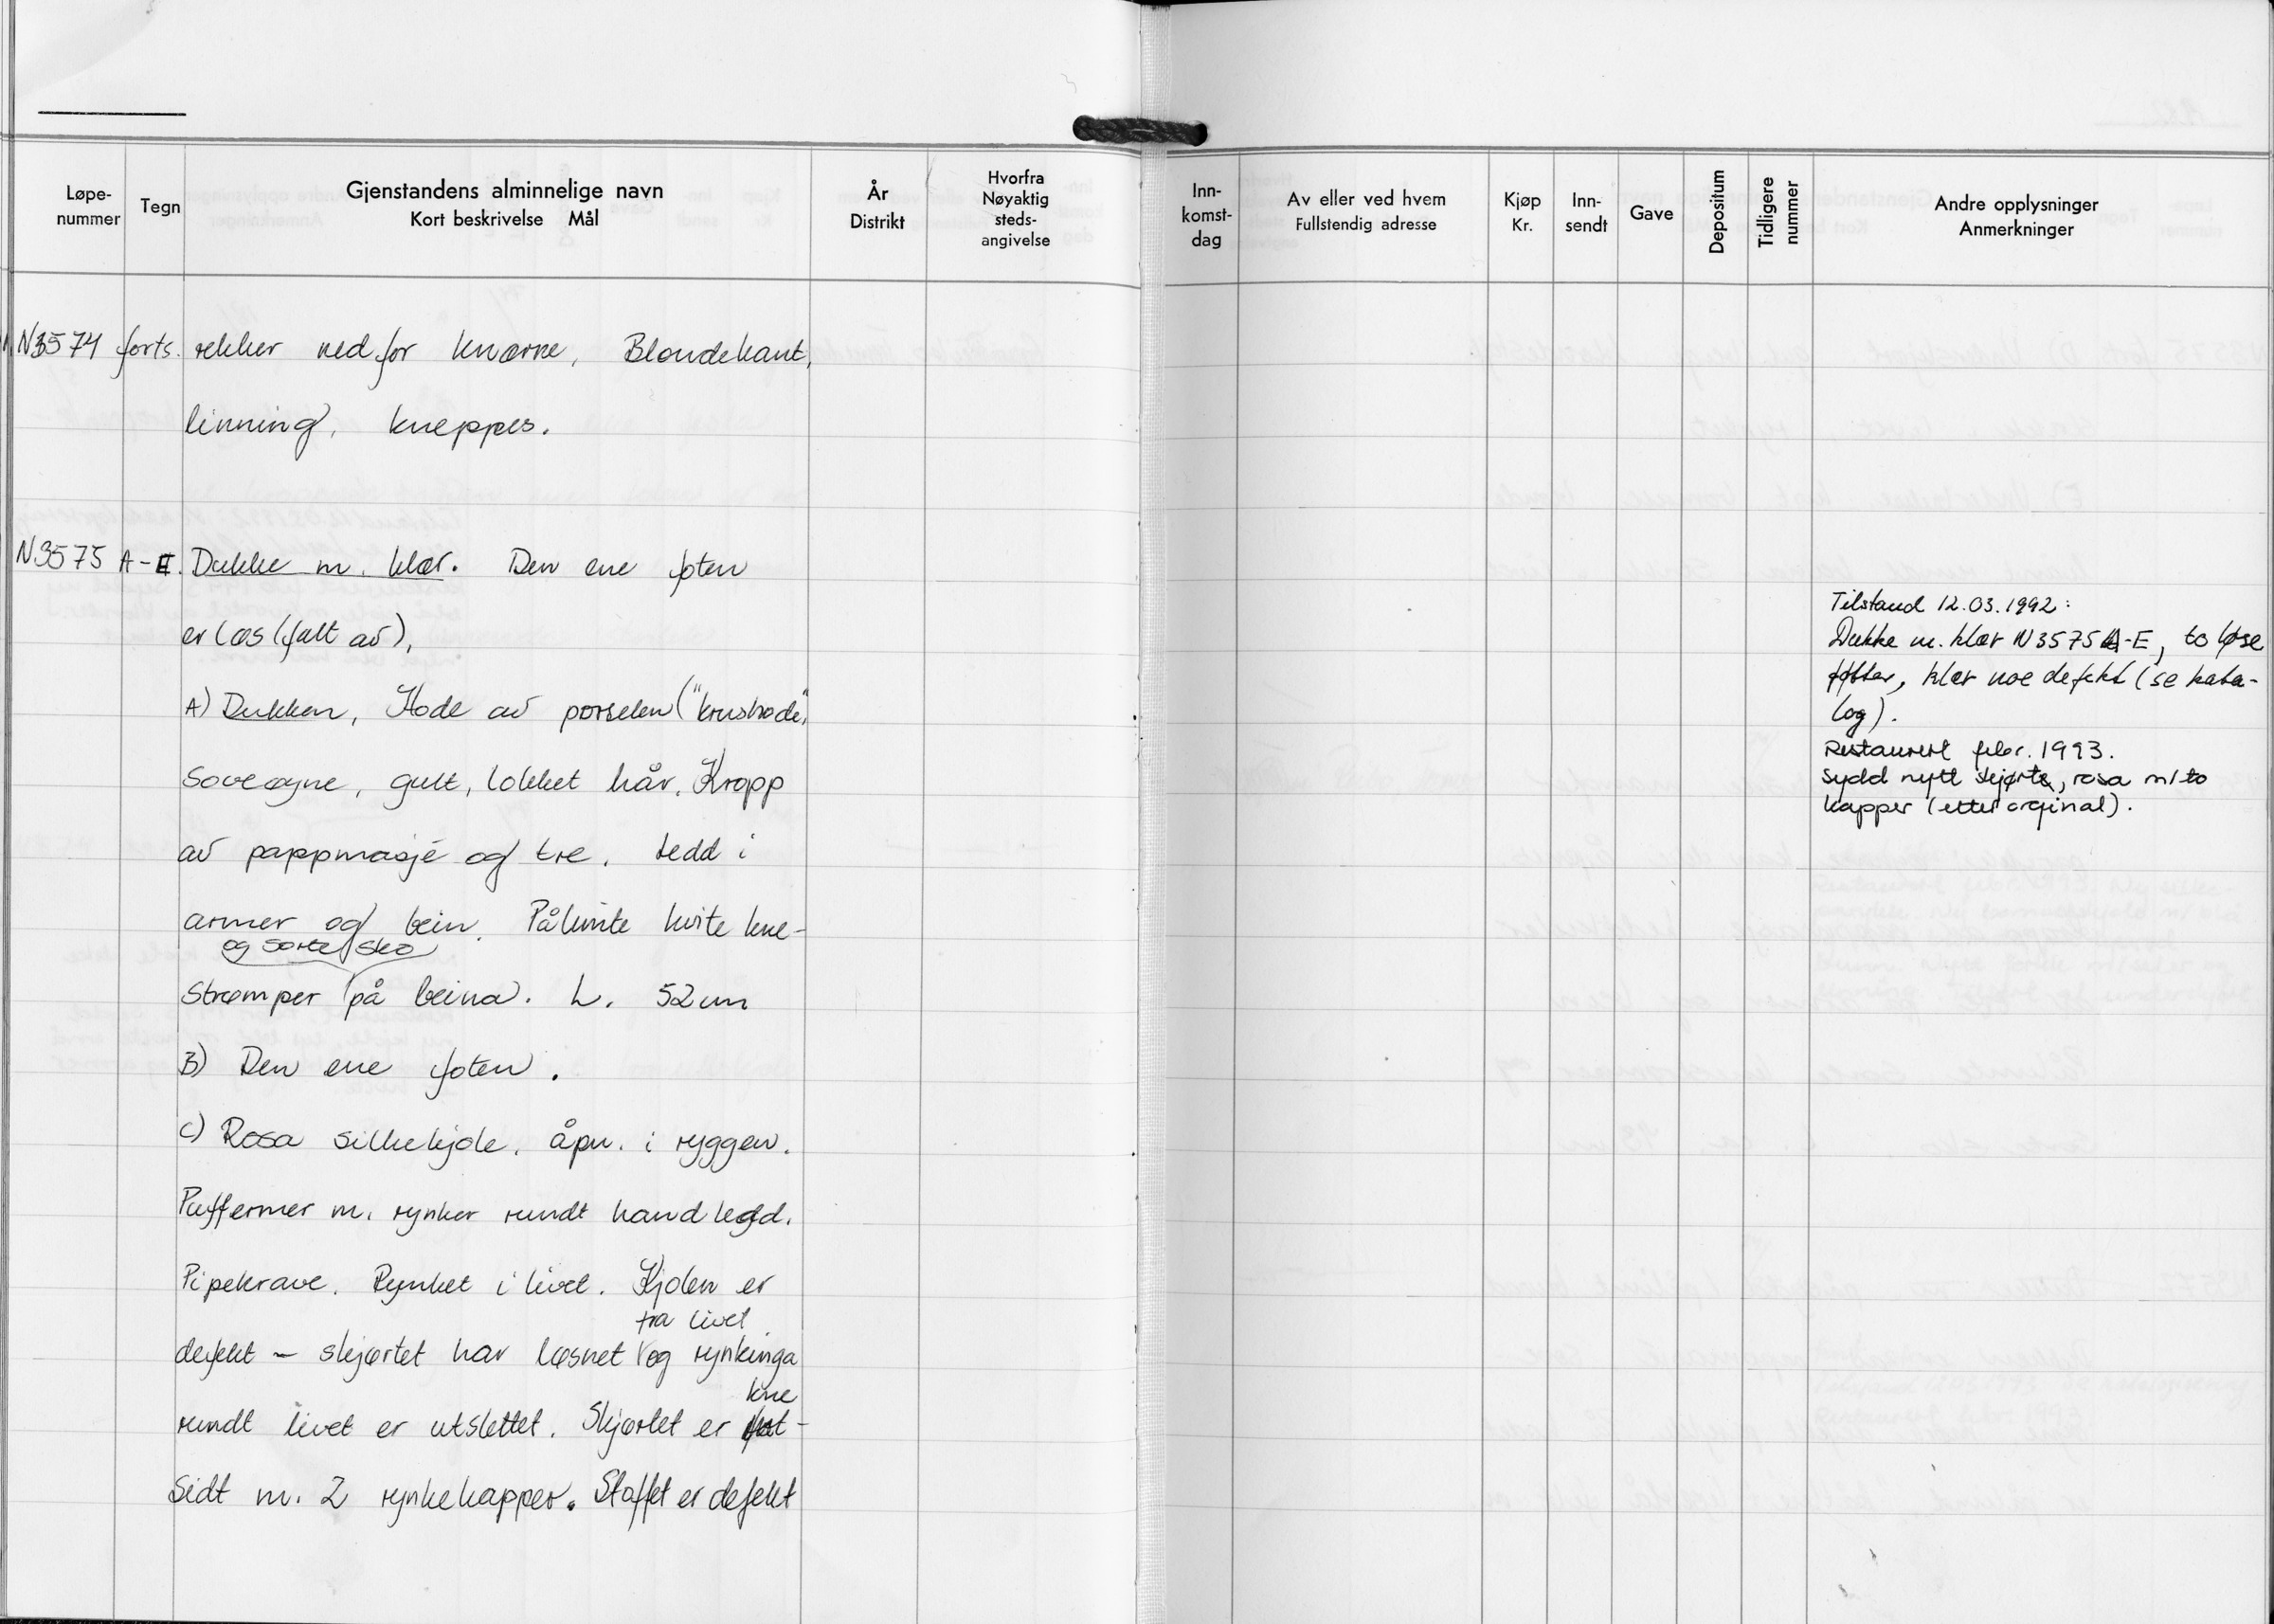 Løpe-
nummer
Tegn
Gjenstandens alminnelige navn
Kort beskrivelse Mål
År
Distrikt
Hvorfra
Nøyaktig
steds-
angivelse
Inn-
komst-
dag
Av eller ved hvem
Fullstendig adresse
Kjøp
Kr.
Inn-
sendt
Gave
Depositum
Tidligere
nummer
Andre opplysninger
Anmerkninger
N3574 forts. rekker ned for knærne, Blondekant,
linning, kneppes.
N3575 A-E. Dukke m. klær. Den ene foten
er løs (falt av),
A) Dukken, Hode av porselen ("krushode",
Soveøyne, gult, lokket hår. Kropp
av pappmasjé og tre, ledd i
armer og bein. Pålimte hvite kne-
og sorte sko
strømper på beina. L. 52 cm
B) Den ene foten.
C) Rosa silkekjole, åpn. i ryggen.
Puffermer m. rynker rundt handledd.
Pipekrave. Rynket i livet. Kjolen er
fra livet
defekt - skjørtet har løsnet og rynkinga
kne
rundt livet er utslettet. Skjørtet er -
sidt m. 2 rynkekapper. Stoffet er defekt
Tilstand 12.03.1992:
Dukke m. klær N3575 A-E, to løse
føtter, klær noe defekt (se kata-
log).
Restaurert febr. 1993.
Sydd nytt skjørt, rosa m/to
kapper (etter orginal).